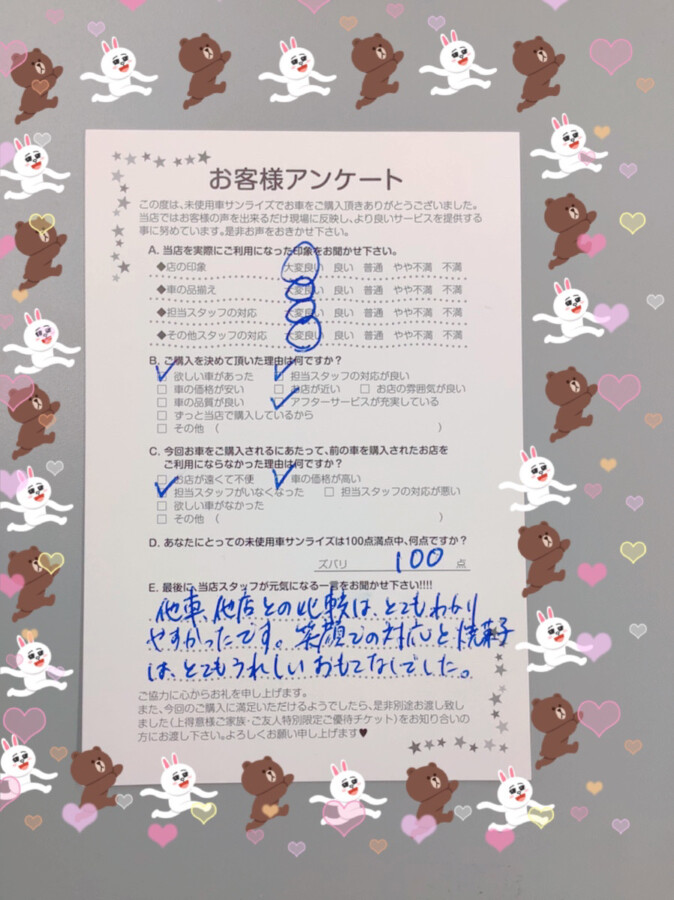 お客様アンケート
この度は、未使用車サンライズでお車をご購入頂きありがとうございました。
当店ではお客様の声を出来るだけ現場に反映し、より良いサービスを提供する
事に努めています。是非お声をおきかせ下さい。
A. 当店を実際にご利用になった印象をお聞かせ下さい。
◆店の印象 大変良い 良い 普通 やや不満 不満
◆車の品揃え 大変良い 良い 普通 やや不満 不満
◆担当スタッフの対応 大変良い 良い 普通 やや不満 不満
◆その他スタッフの対応 大変良い 良い 普通 やや不満 不満
B. ご購入を決めて頂いた理由は何ですか?
欲しい車があった 担当スタッフの対応が良い
□ 車の価格が安い □ お店が近い □ お店の雰囲気が良い
□ 車の品質が良い アフターサービスが充実している
□ ずっと当店で購入しているから
□ その他 ( )
C. 今回お車をご購入されるにあたって、前の車を購入されたお店を
ご利用にならなかった理由は何ですか?
□ お店が遠くて不便 車の価格が高い
担当スタッフがいなくなった □ 担当スタッフの対応が悪い
□ 欲しい車がなかった
□ その他 ( )
D. あなたにとっての未使用車サンライズは100点満点中、何点ですか?
ズバリ 100 点
E. 最後に、当店スタッフが元気になる一言をお聞かせ下さい!!!!
他車、他店との比較は、とてもわかり
やすかったです。笑顔での対応と焼菓子
は、とてもうれしいおもてなしでした。
ご協力に心からお礼を申し上げます。
また、今回のご購入に満足いただけるようでしたら、是非別途お渡し致し
ました(上得意様ご家族・ご友人特別限定ご優待チケット)をお知り合いの
方にお渡し下さい。よろしくお願い申し上げます♥